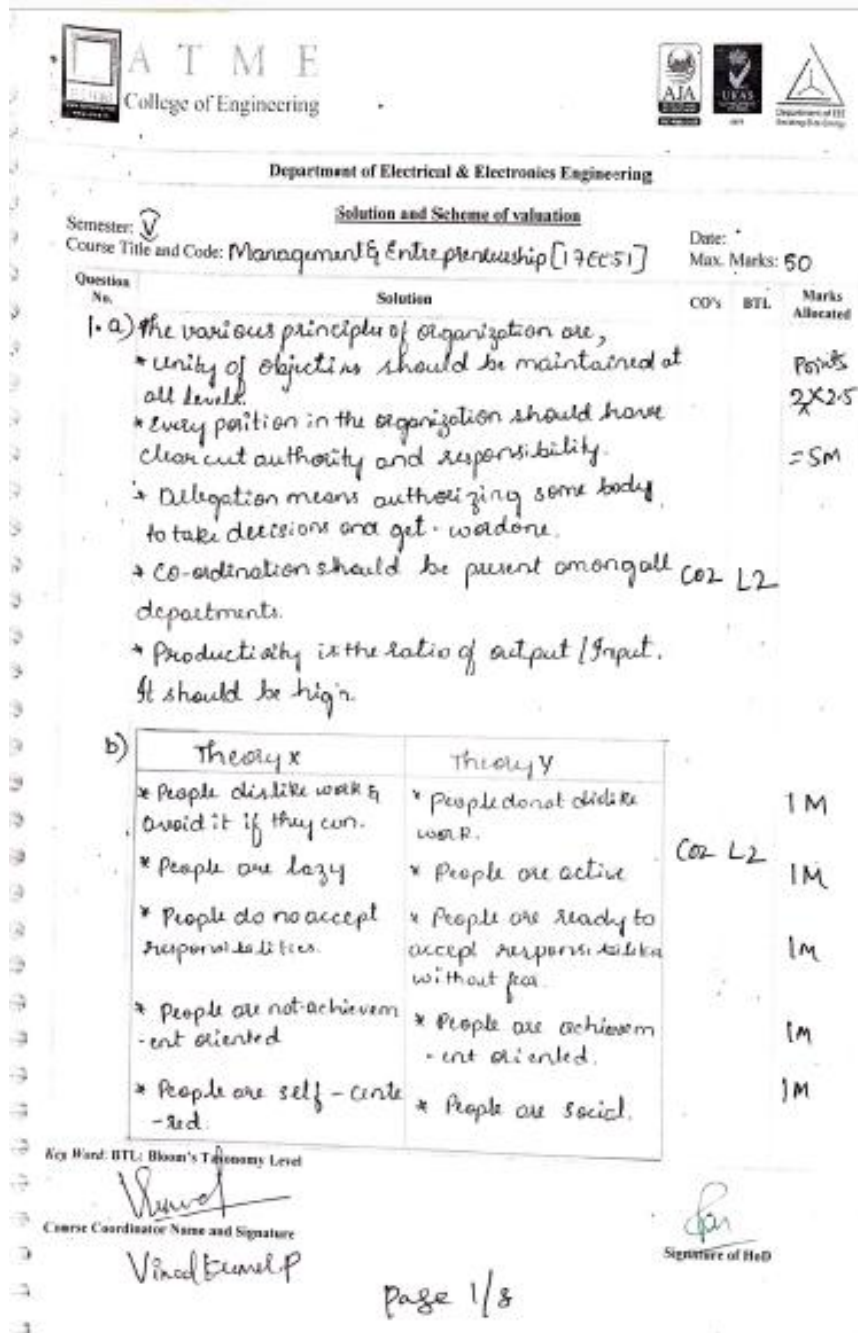 A T M E
College of Engineering
AJA
UKAS
Department of EEE
Department of Electrical & Electronics Engineering
Solution and Scheme of valuation
Semester: V
Date:
Course Title and Code: Management & Entrepreneurship [17EC51]
Max. Marks: 50
Question No.
Solution
CO's
BTL
Marks Allocated
1. a) The various principles of organization are,
* unity of objectives should be maintained at
all levels.
Points
2x2.5
* Every position in the organization should have
clear cut authority and responsibility.
=5M
* Delegation means authorizing some body
to take decisions and get
* Co-ordination should be present among all
CO2 L2
departments.
* Productivity is the ratio of output / Input.
It should be high.
b)
Theory X
Theory Y
* People dislike work &
avoid it if they can.
* People do not dislike
work.
1M
CO2 L2
* People are lazy
* People are active
1M
* People do no accept
responsibilities.
* People are ready to
accept responsibilities
without fear.
1M
* People are not achievem
-ent oriented
* People are achievem
-ent oriented.
1M
* People are self-cente
-red.
* People are social.
1M
Key Word: BTL: Bloom's Taxonomy Level
Course Coordinator Name and Signature
Signature of HoD
Page 1/8